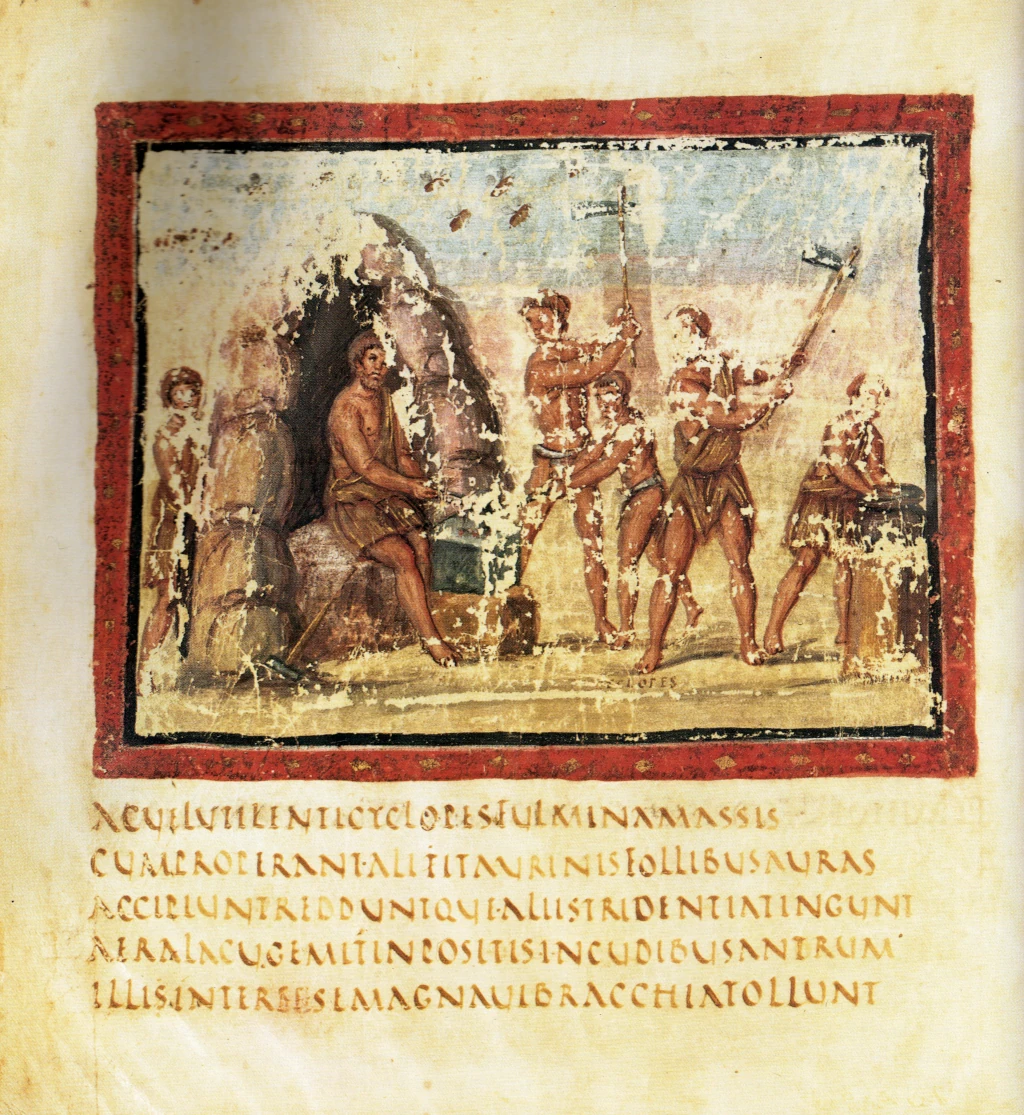 CYCLOPES
ACUELUTILENTICYCLOPESFULMINAMASSIS
CUMPROPERANT·ALIITAURINISFOLLIBUSAURAS
ACCIPIUNTREDDUNTQUE·ALIISTRIDENTIATINGUNT
AERALACU·GEMITINPOSITIS·INCUDIBUSANTRUM
ILLIS·INTERSESEMAGNAUIBRACCHIATOLLUNT